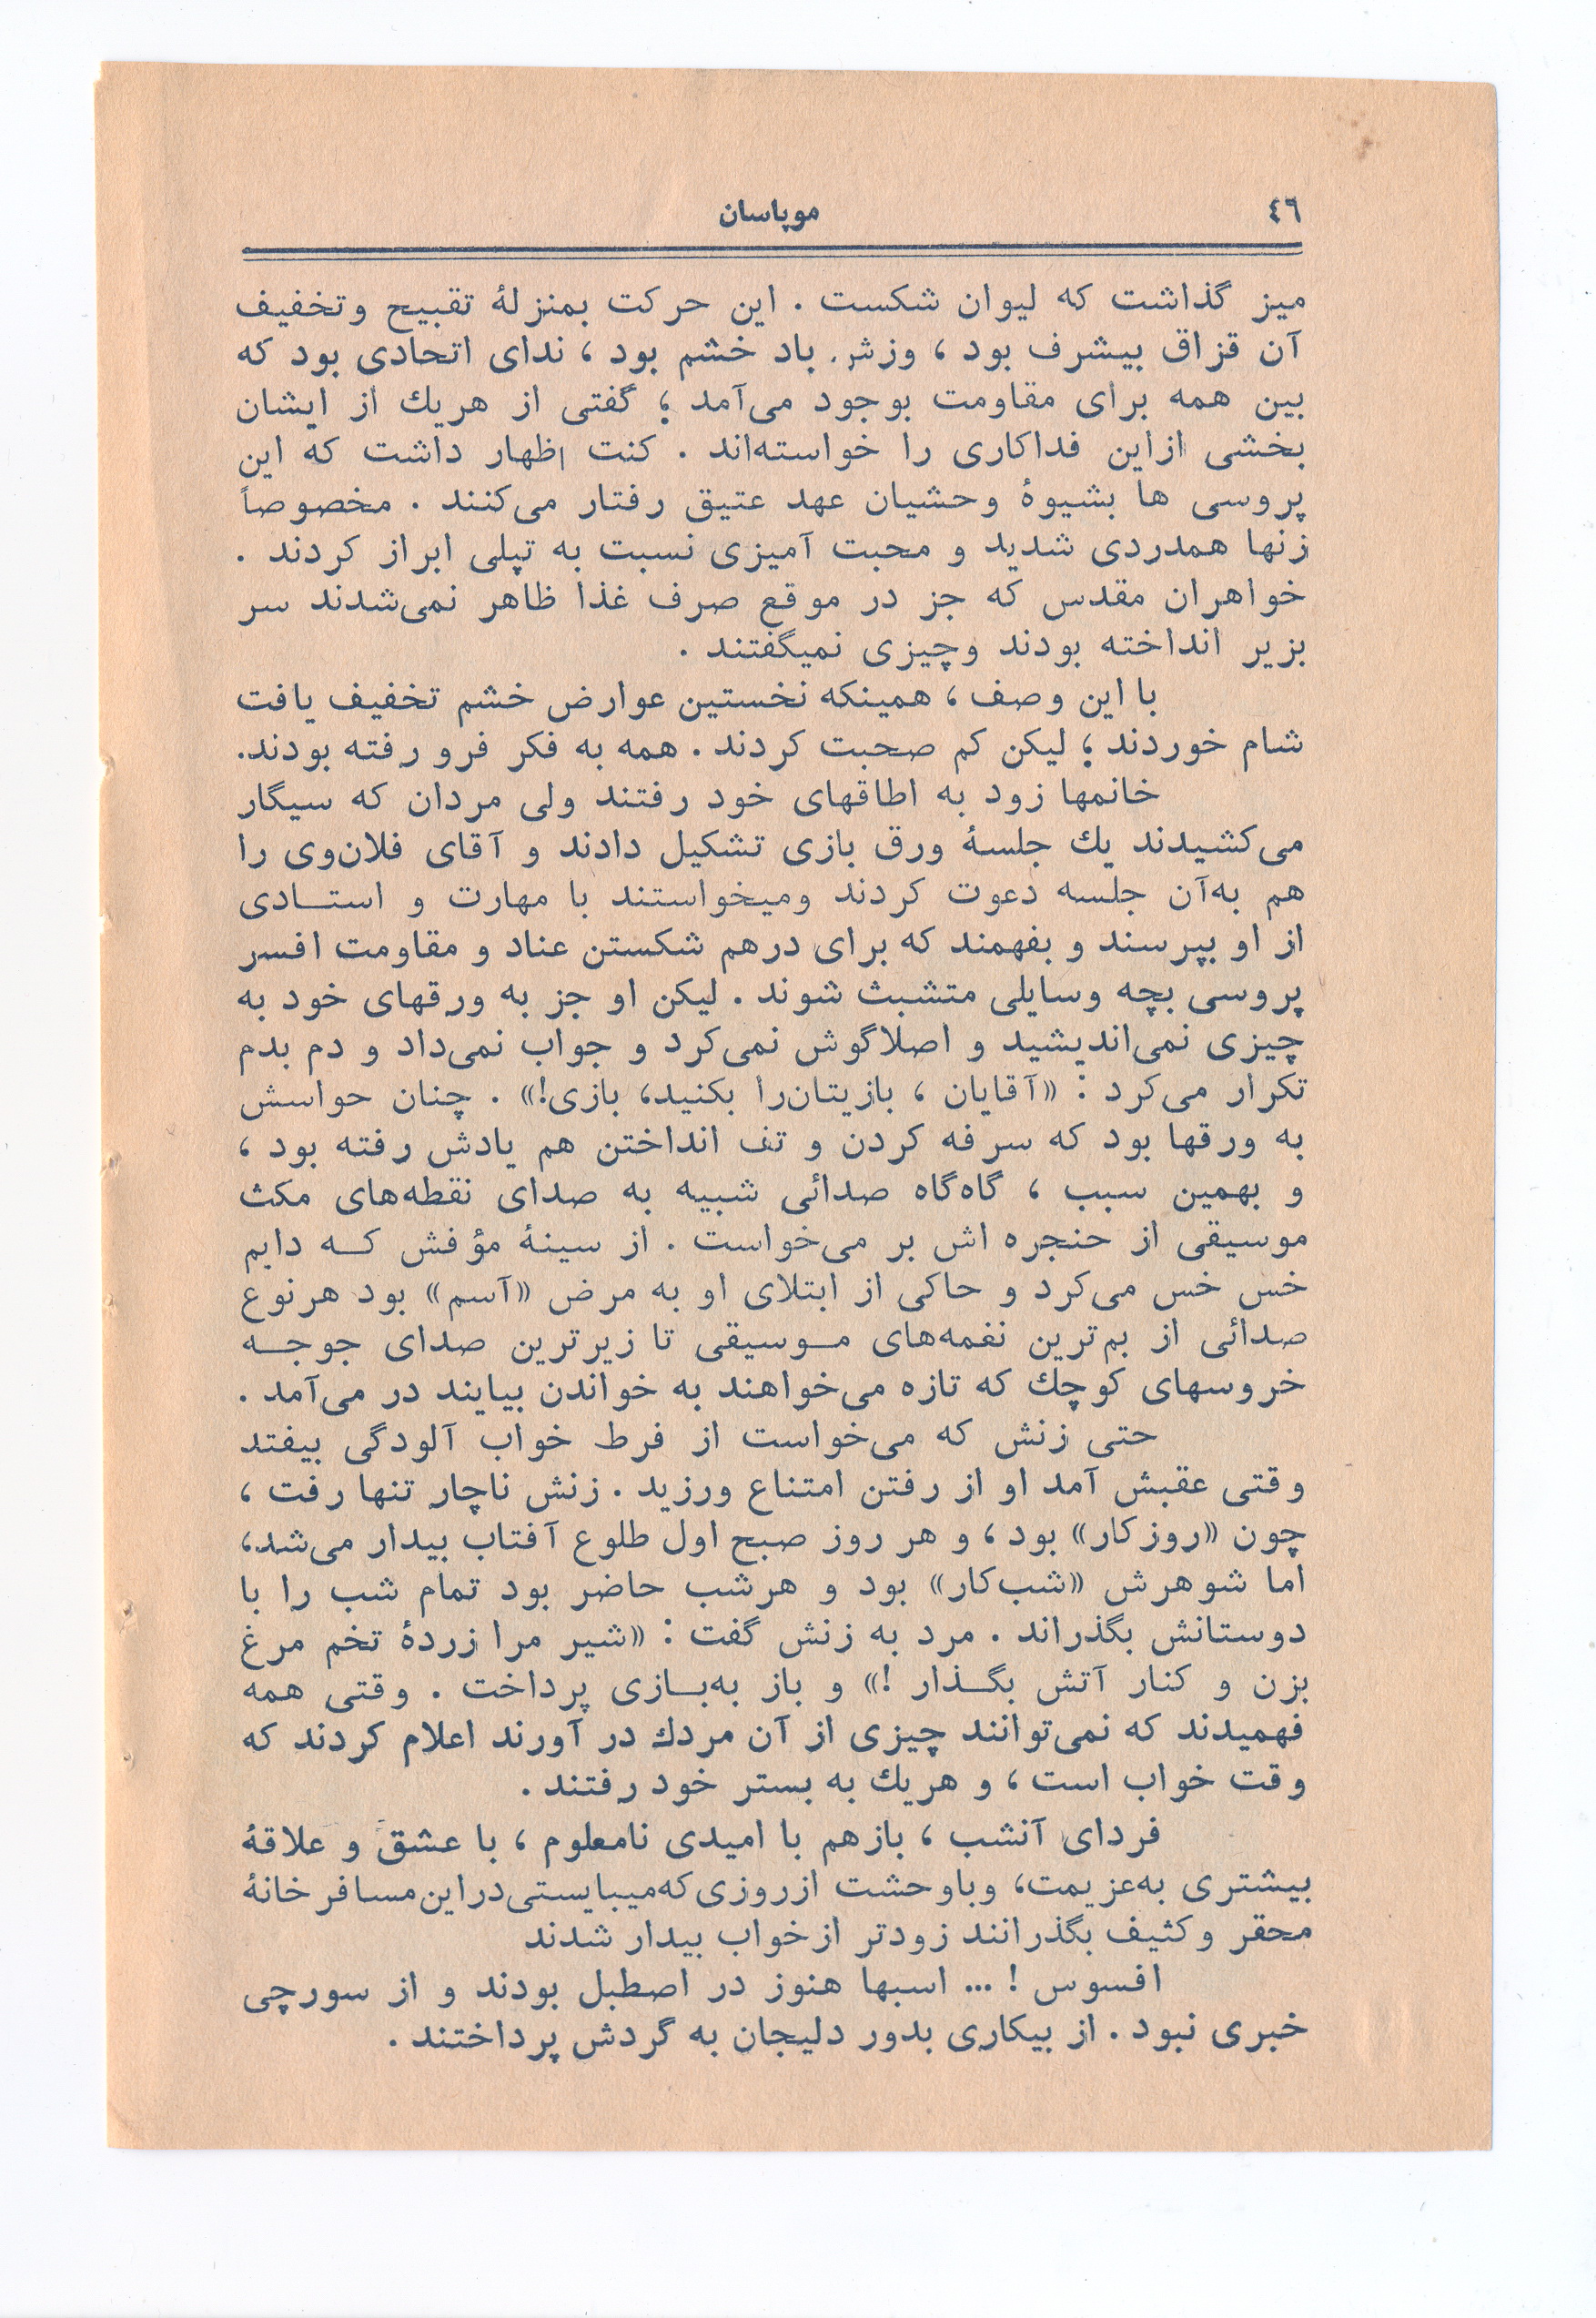 ٤٦
موپاسان
میز گذاشت که لیوان شکست . این حرکت بمنزلهٔ تقبیح وتخفیف
آن قزاق بیشرف بود ، وزش باد خشم بود ، ندای اتحادی بود که
بین همه برای مقاومت بوجود می‌آمد ؛ گفتی از هریك از ایشان
بخشی ازاین فداکاری را خواسته‌اند . کنت اظهار داشت که این
پروسی ها بشیوهٔ وحشیان عهد عتیق رفتار می‌کنند . مخصوصاً
زنها همدردی شدید و محبت آمیزی نسبت به تپلی ابراز کردند .
خواهران مقدس که جز در موقع صرف غذا ظاهر نمی‌شدند سر
بزیر انداخته بودند وچیزی نمیگفتند .
با این وصف ، همینکه نخستین عوارض خشم تخفیف یافت
شام خوردند ؛ لیکن کم صحبت کردند . همه به فکر فرو رفته بودند.
خانمها زود به اطاقهای خود رفتند ولی مردان که سیگار
می‌کشیدند یك جلسهٔ ورق بازی تشکیل دادند و آقای فلان‌وی را
هم به‌آن جلسه دعوت کردند ومیخواستند با مهارت و استــادی
از او بپرسند و بفهمند که برای درهم شکستن عناد و مقاومت افسر
پروسی بچه وسایلی متشبث شوند . لیکن او جز به ورقهای خود به
چیزی نمی‌اندیشید و اصلاگوش نمی‌کرد و جواب نمی‌داد و دم بدم
تکرار می‌کرد : «آقایان ، بازیتان‌را بکنید، بازی!» . چنان حواسش
به ورقها بود که سرفه کردن و تف انداختن هم یادش رفته بود ،
و بهمین سبب ، گاه‌گاه صدائی شبیه به صدای نقطه‌های مکث
موسیقی از حنجره اش بر می‌خواست . از سینهٔ مؤفش کــه دایم
خس خس می‌کرد و حاکی از ابتلای او به مرض «آسم» بود هرنوع
صدائی از بم‌ترین نغمه‌های مــوسیقی تا زیرترین صدای جوجــه
خروسهای کوچك که تازه می‌خواهند به خواندن بیایند در می‌آمد .
حتی زنش که می‌خواست از فرط خواب آلودگی بیفتد
وقتی عقبش آمد او از رفتن امتناع ورزید . زنش ناچار تنها رفت ،
چون «روزکار» بود ، و هر روز صبح اول طلوع آفتاب بیدار می‌شد،
اما شوهرش «شب‌کار» بود و هرشب حاضر بود تمام شب را با
دوستانش بگذراند . مرد به زنش گفت : «شیر مرا زردهٔ تخم مرغ
بزن و کنار آتش بگــذار !» و باز به‌بــازی پرداخت . وقتی همه
فهمیدند که نمی‌توانند چیزی از آن مردك در آورند اعلام کردند که
وقت خواب است ، و هریك به بستر خود رفتند .
فردای آنشب ، بازهم با امیدی نامعلوم ، با عشق و علاقهٔ
بیشتری به‌عزیمت، وباوحشت ازروزی‌که‌میبایستی‌دراین‌مسافرخانهٔ
محقر وکثیف بگذرانند زودتر ازخواب بیدار شدند
افسوس ! ... اسبها هنوز در اصطبل بودند و از سورچی
خبری نبود . از بیکاری بدور دلیجان به گردش پرداختند .